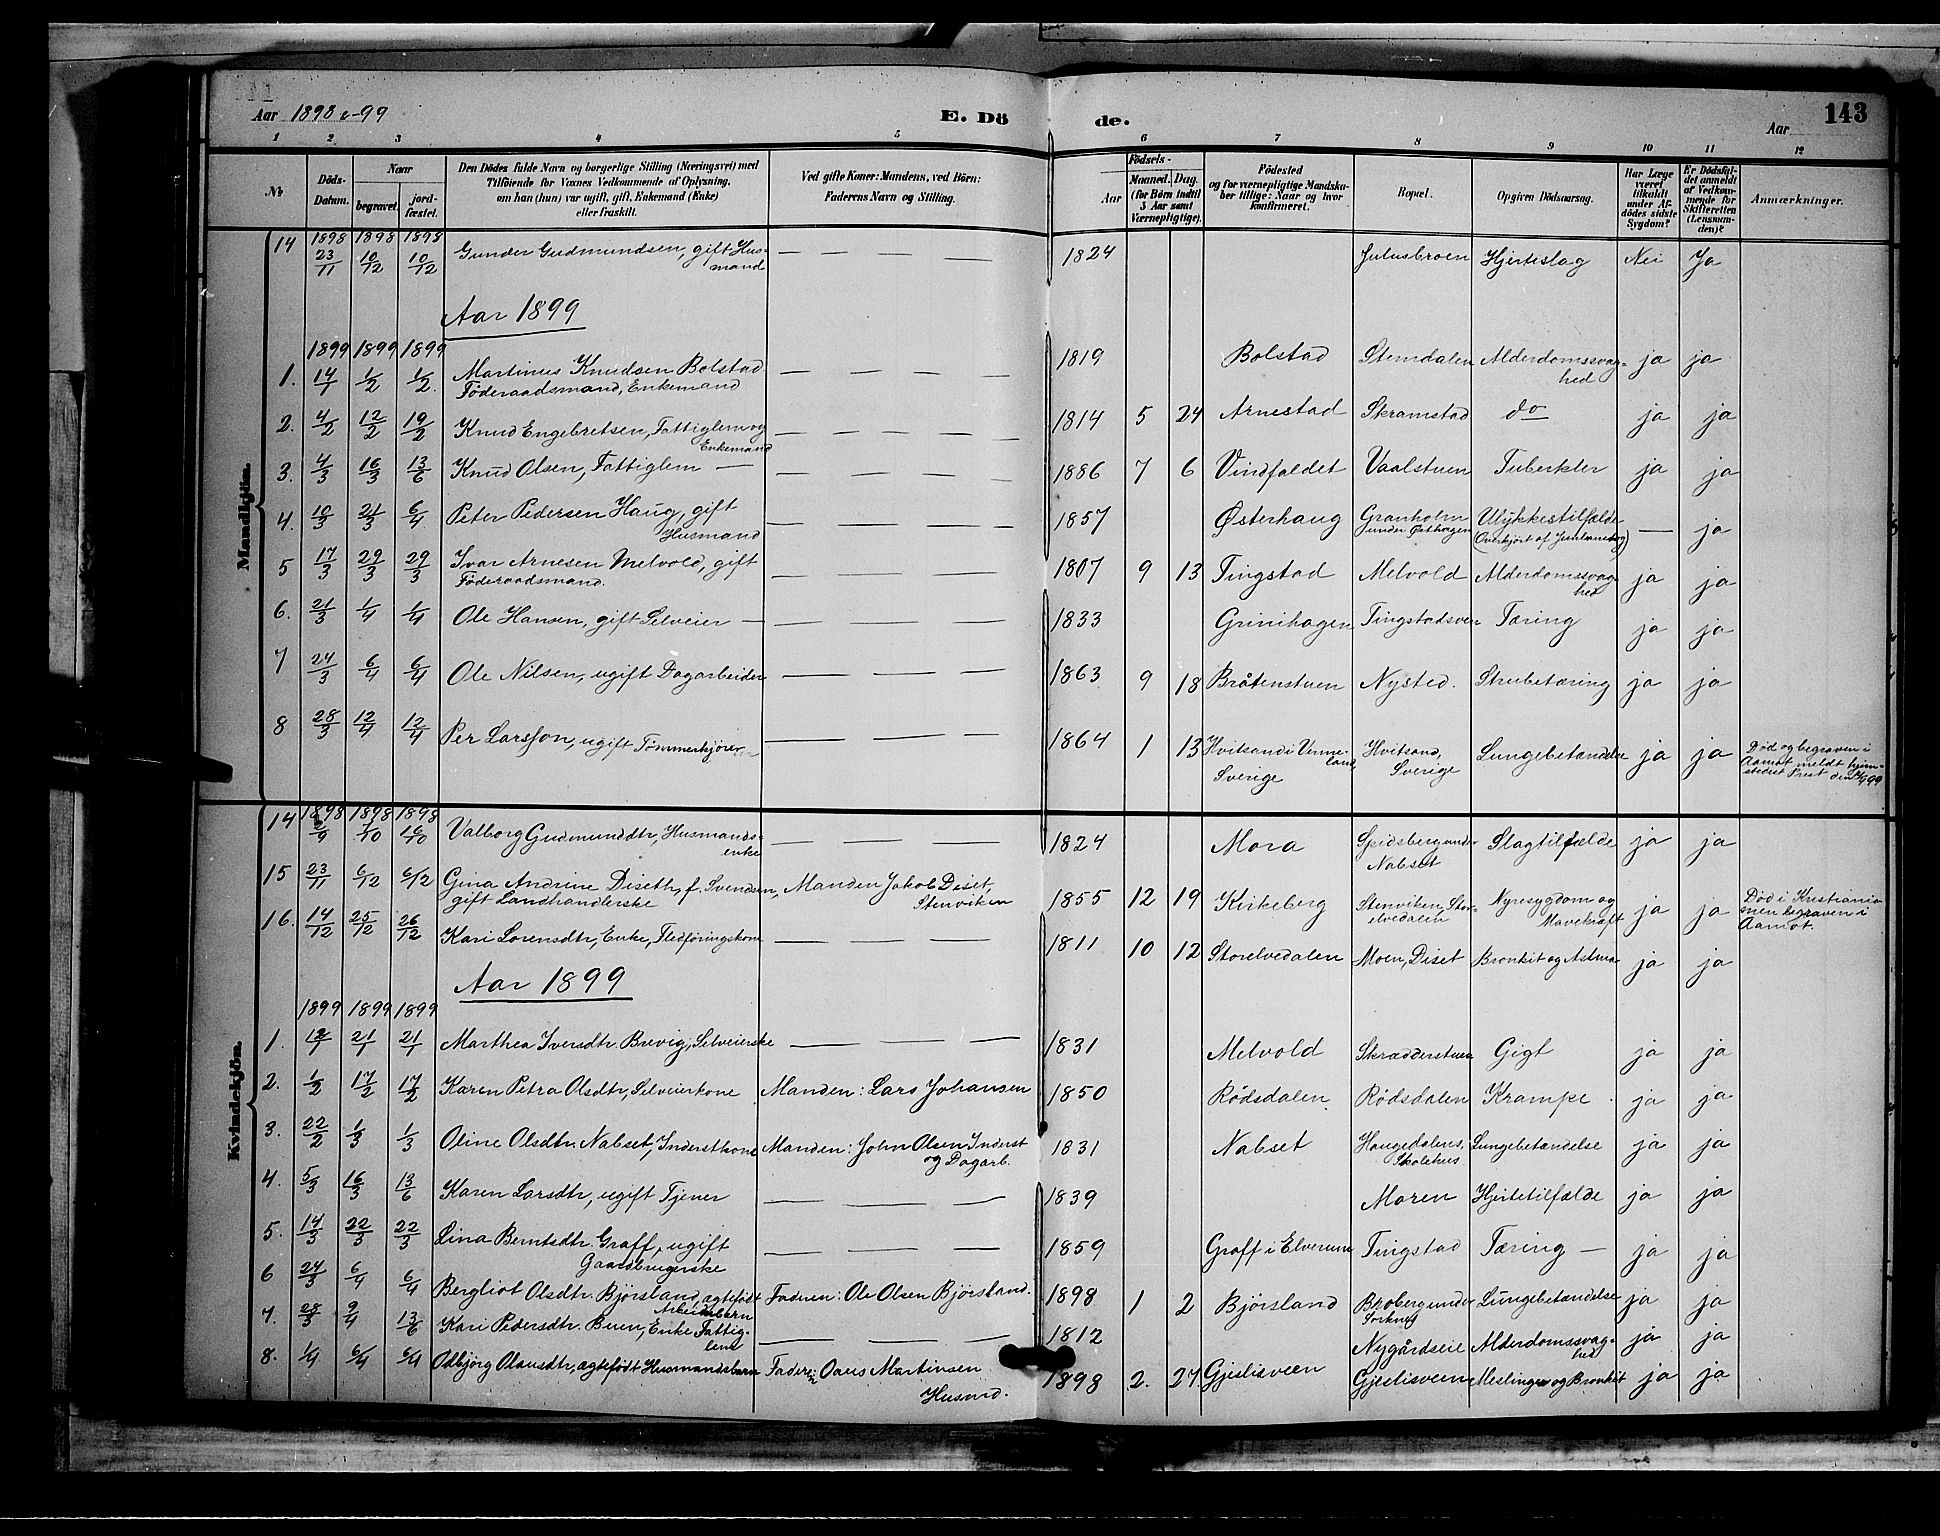 Aar 1898 & -99 E. Dö de. Aar 143
1 2 3 4 5 6 7 8 9 10 11 12
No Döds-Datum. Naar begravet. jord-fæstet. Den Dödes fulde Navn og borgerlige Stilling (Næringsvei) med Tilföiende for Voxnes Vedkommende af Oplysning, om han (hun) var ugift, gift, Enkemand (Enke) eller fraskilt. Ved gifte Koner: Mandens, ved Börn: Faderens Navn og Stilling. Födsels- Aar Maaned. Dag. (for Börn indtil 5 Aar samt Værnepligtige). Födested og for værnepligtige Mandskaber tillige: Naar og hvor konfirmeret. Bopæl. Opgiven Dödsaarsag. Har Læge været tilkaldt under Afdödes sidste Sygdom? Er Dödsfaldet anmeldt af Vedkommende for Skifteretten (Lensmanden)? Anmærkninger.
Mandkjön.
1898 1898 1898
14 23/11 10/12 10/12 Gunder Gudmundsen, gift Husmand — — — — 1824 Julusbroen Hjerteslag Nei Ja
Aar 1899
1899 1899 1899
1. 14/1 1/2 1/2. Martinus Knudsen Bolstad Föderaadsmand, Enkemand — — — — 1819 Bolstad Stemdalen Alderdomssvaghed ja ja
2. 4/2 12/2 19/2 Knud Engebretsen, Fattiglem og Enkemand — — — — 1814 5 24 Arnestad Skramstad do ja ja
3. 4/3 16/3 13/6 Knud Olsen, Fattiglem — — — — — 1886 7 6 Vindfaldet Vaalstuen Tuberkler ja ja
4. 10/3 21/3 6/4 Peter Pedersen Haug, gift Husmand — — — — 1857 Østerhaug Granholm under Østhagen Ulykkestilfælde (Overkjört af Jernbanetog) — ja
5 17/3 29/3 29/3 Ivar Arnesen Melvold, gift Föderaadsmand. — — — — 1807 9 13 Tingstad Melvold Alderdomssvaghed ja ja
6. 21/3 1/4 1/4 Ole Hansen, gift Selveier — — — — — 1833 Grinihagen Tingstadsveen Tæring ja ja
7 24/3 6/4 6/4 Ole Nilsen, ugift Dagarbeider — — — — 1863 9 18 Bråtenstuen Nysted. Strubetæring ja ja
8 28/3 12/4 12/4 Per Larsson, ugift Tömmerkjører — — — — 1864 1 13 Hvitsand i Vermeland, Sverige Hvitsand, Sverige Lungebetændelse ja ja Död og begraven i Aamot meldt hjemstedets Prest den
Kvindekjön.
1898 1898 1898
14 2/9 Valborg Gudmunddtr, Husmandsenke — — — — 1824 Mora Spidsberg under Nabset Slagtilfælde ja ja
15 23/11 6/12 6/12 Gina Andrine Diseth, f. Svendsen, gift Landhandlerske Manden Jakob Diset, Stenviken 1855 12 19 Kirkeberg Stenviken, Storelvedalen Nyresygdom og Mavekræft ja ja Död i Kristiania men begraven i Aamot.
16. 14/12 25/12 26/12 Kari Lorensdtr, Enke, Fledföringskone — — — — 1811 10 12 Storelvedalen Moen, Diset Bronkit og Astma ja ja
Aar 1899
1899 1899 1899
1. 21/1 21/1 Marthea Iversdtr. Brevig, Selveierske — — — — 1831 Melvold Skrædderstuen Gigt ja ja
2. 1/2 17/2 17/2 Karen Petra Olsdtr, Selveierkone Manden: Lars Johansen 1850 Rödsdalen Rödsdalen Krampe ja ja
3. 22/2 1/3 1/3 Oline Olsdtr. Nabset, Inderstkone Manden: John Olsen Inderst og Dagarb. 1831 Nabset Haugedalens Skolehus Lungebetændelse ja ja
4. 5/3 16/3 13/6 Karen Larsdtr, ugift Tjener — — — — 1839 Moren Hjertetilfælde ja ja
5. 14/3 22/3 22/3 Lina Berntsdtr. Graff, ugift Gaardbrugerske — — — — 1859 Graff i Elverum Tingstad Tæring — ja ja
6 24/3 6/4 6/4 Bergliot Olsdtr. Björsland, ægtefödt Arbeiderbarn Faderen: Ole Olsen Björsland. 1898 1 2 Björsland Broberg under Sorknes Lungebetændelse ja ja
7. 28/3 9/4 13/6 Kari Pedersdtr. Buen, Enke Fattiglem — — — — 1812 Nygårdseie Alderdomssvaghed ja ja
8. 1/4 6/4 6/4 Odbjörg Olausdtr, ægtefödt Husmandsbarn Faderen Oaus Martinsen Husmd. 1898 2. 27 Gjeslisveen Gjeslisveen Meslinger og Bronkit ja ja